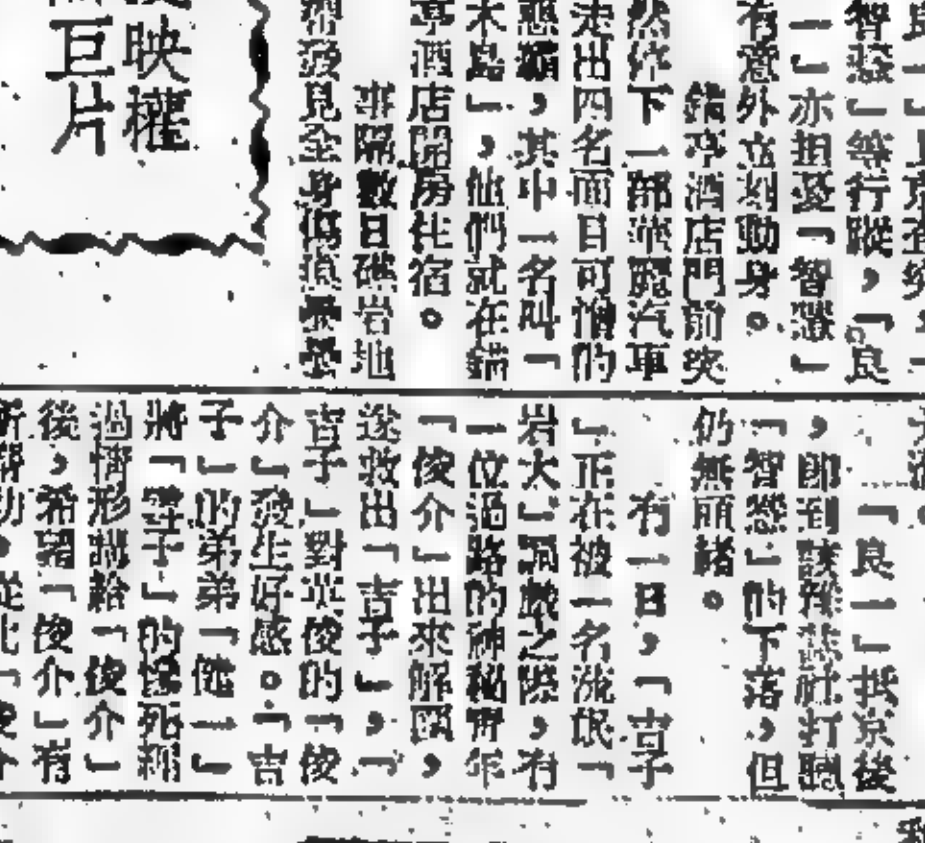 映權
巨片
良一」上京
智慧」等行蹤,「良
一」亦担憂「智慧」
有意外立刻動身。
錨亭酒店門前突
然停下一部華麗汽車
走出四名面目可憎的
惡霸,其中一名叫「
木島」,他們就在錨
亭酒店開房住宿。
事隔數日礁岩地
帶發見全身傷痕纍纍
「良一」抵京後
,即到該雜誌社打聽
「智慧」的下落,但
仍無頭緒。
有一日,「吉子
」正在被一名流氓「
岩大」調戲之際,有
一位過路的神秘青年
「俊介」出來解圍,
遂救出「吉子」,「
吉子」對英俊的「俊
介」發生好感。「吉
子」的弟弟「健一」
將「等子」的慘死經
過情形講給「俊介」
後,希望「俊介」有
所幫助。從此「俊介